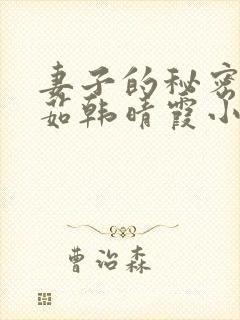 妻子的秘密
茹韩晴霞小
曹治森